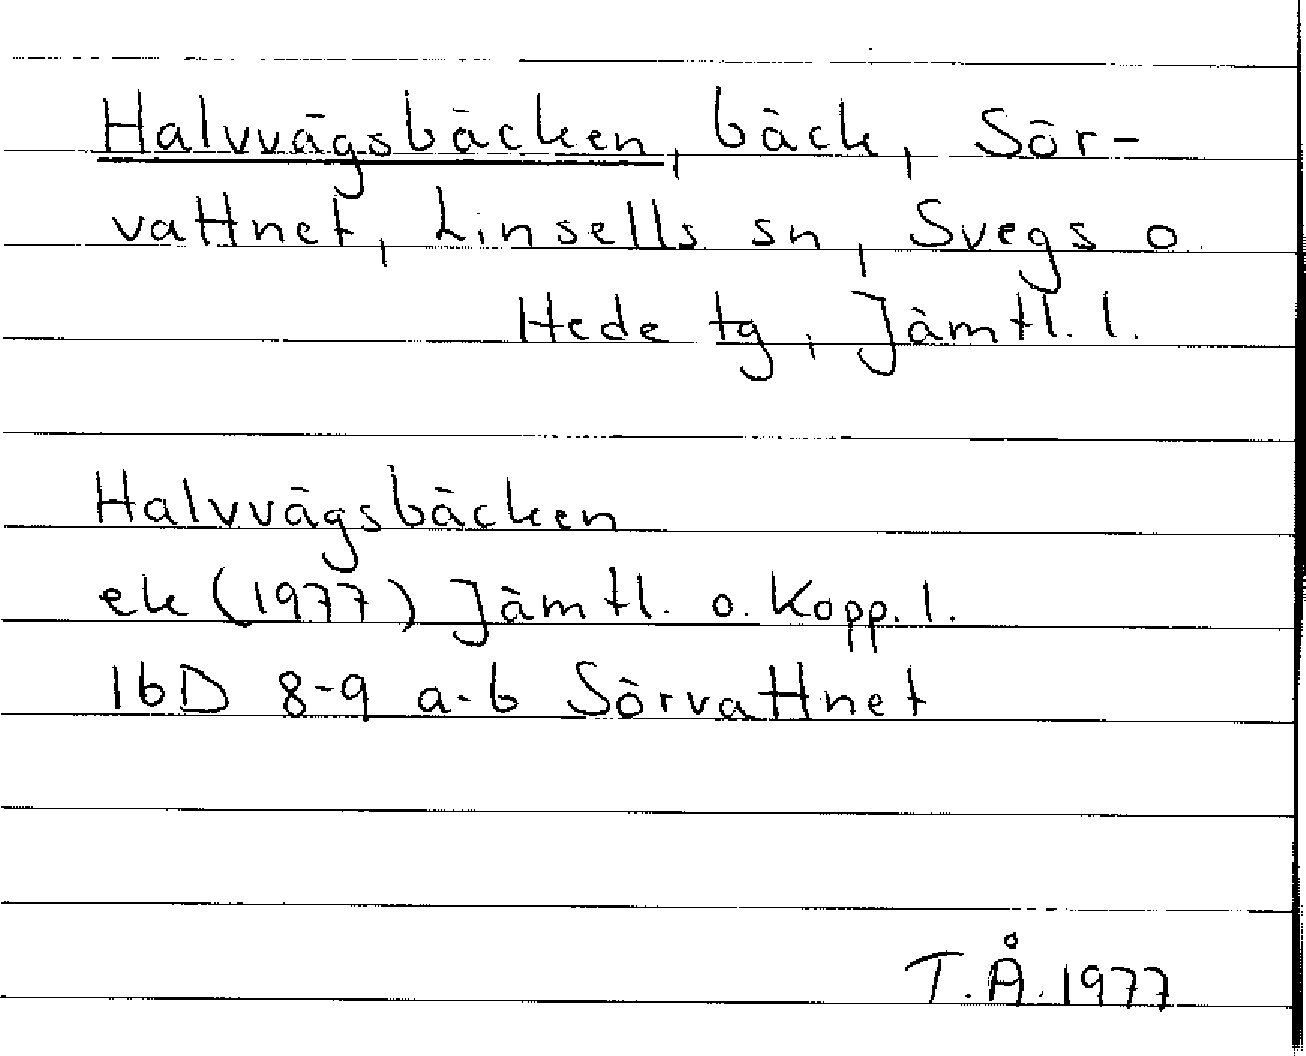 Halvvägsbäcken, bäck, Sör-
vattnet, Linsells sn, Svegs o
Hede tg, Jämtl. l.
Halvvägsbäcken
ek (1977) Jämtl. o. Kopp. l.
16D 8-9 a-b Sörvattnet
T.Å. 1977